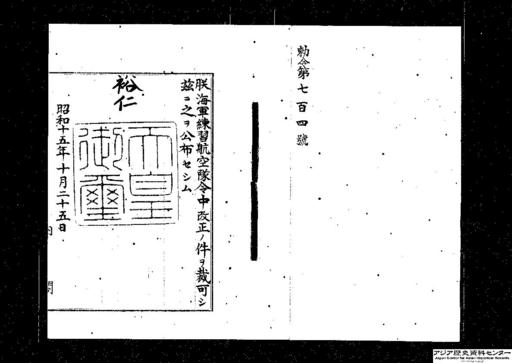 勅令第七百四號
朕海軍練習航空隊令中改正ノ件ヲ裁可シ
茲ニ之ヲ公布セシム
裕仁
天皇
御璽
昭和十五年十月二十五日
内閣
アジア歴史資料センター
Japan Center for Asian Historical Records